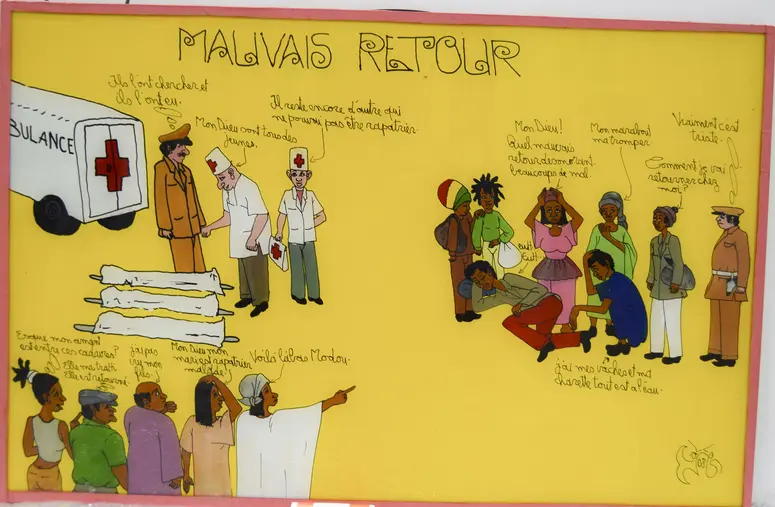 MAUVAIS RETOUR
Ils l'ont chercher et
ils l'ont eu.
BULANCE
Mon Dieu sont tous des
jeunes.
Il reste encore d'autre qui
ne pourri pas être rapatrier
Mon Dieu!
Quel mauvais
retour des
beaucoups de mal.
Mon marabout
ma tromper
Vraiment c'est
triste.
Comment je vai
retourner chez
moi?
euh
euh..
j'ai mes vaches et ma
charette tout est a l'eau.
mon amant
est entre ces cadavres?
Elle ma trahi
Elle est retourné.
j'ai pas
vu mon
fils.
Mon Dieu mon
mari est rapatrier
malade!
Voilà labas Modou.